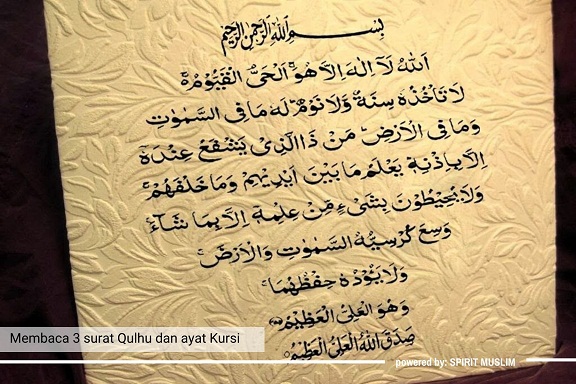 بِسْمِ اللهِ الرَّحْمٰنِ الرَّحِيْمِ
اَللهُ لَآ اِلٰهَ اِلَّا هُوَۚ اَلْحَيُّ الْقَيُّوْمُ ەۚ
لَا تَأْخُذُهٗ سِنَةٌ وَّلَا نَوْمٌ ۗ لَهٗ مَا فِى السَّمٰوٰتِ
وَمَا فِى الْاَرْضِ ۗ مَنْ ذَا الَّذِيْ يَشْفَعُ عِنْدَهٗ
اِلَّا بِاِذْنِهٖ ۗ يَعْلَمُ مَا بَيْنَ اَيْدِيْهِمْ وَمَا خَلْفَهُمْ ۚ
وَلَا يُحِيْطُوْنَ بِشَيْءٍ مِّنْ عِلْمِهٖٓ اِلَّا بِمَا شَآءَ ۚ
وَسِعَ كُرْسِيُّهُ السَّمٰوٰتِ وَالْاَرْضَ ۚ
وَلَا يَـُٔوْدُهٗ حِفْظُهُمَا ۚ
وَهُوَ الْعَلِيُّ الْعَظِيْمُ
صَدَقَ اللهُ الْعَلِيُّ الْعَظِيْمُ
Membaca 3 surat Qulhu dan ayat Kursi
powered by: SPIRIT MUSLIM